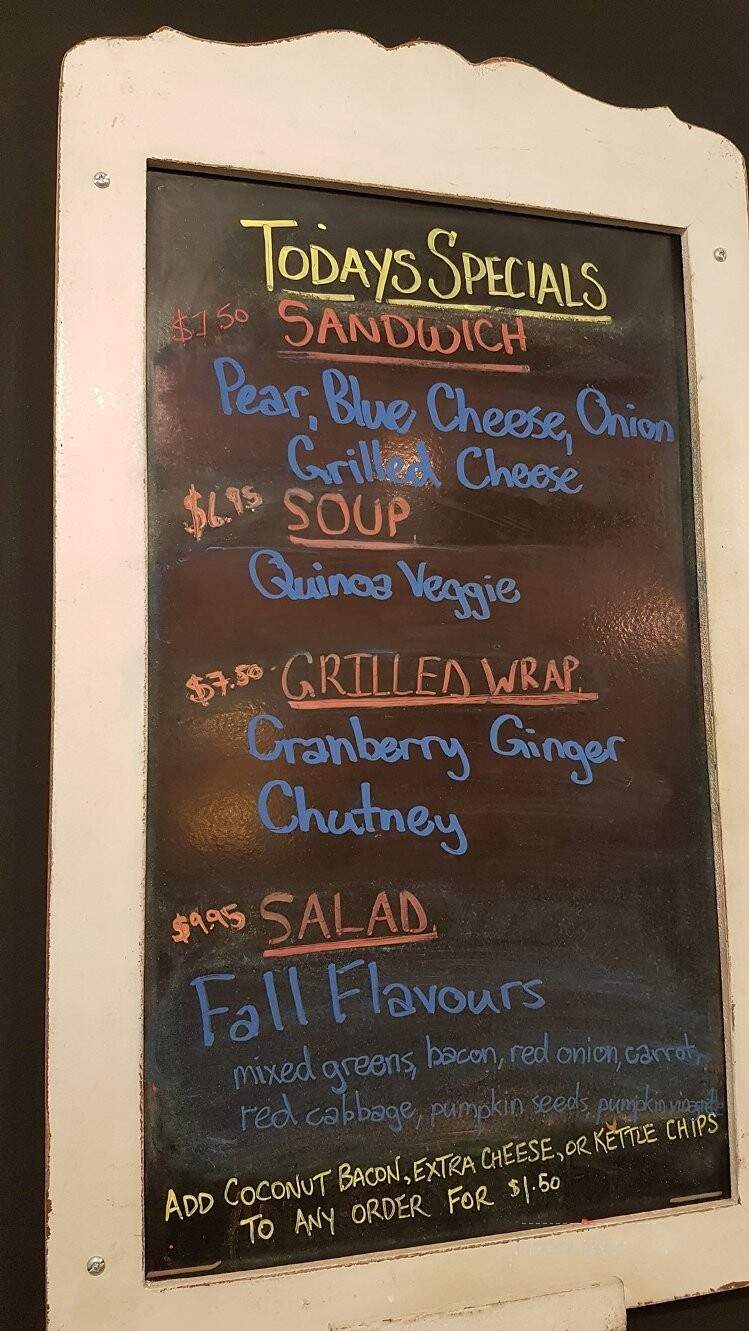 TODAYS SPECIALS
$7.50 SANDWICH
Pear, Blue Cheese, Onion
Grilled Cheese
$6.95 SOUP
Quinoa Veggie
$7.50 GRILLED WRAP
Cranberry Ginger
Chutney
$9.95 SALAD
Fall Flavours
mixed greens, bacon, red onion, carrots,
red cabbage, pumpkin seeds, pumpkin
ADD COCONUT BACON, EXTRA CHEESE, OR KETTLE CHIPS
TO ANY ORDER FOR $1.50